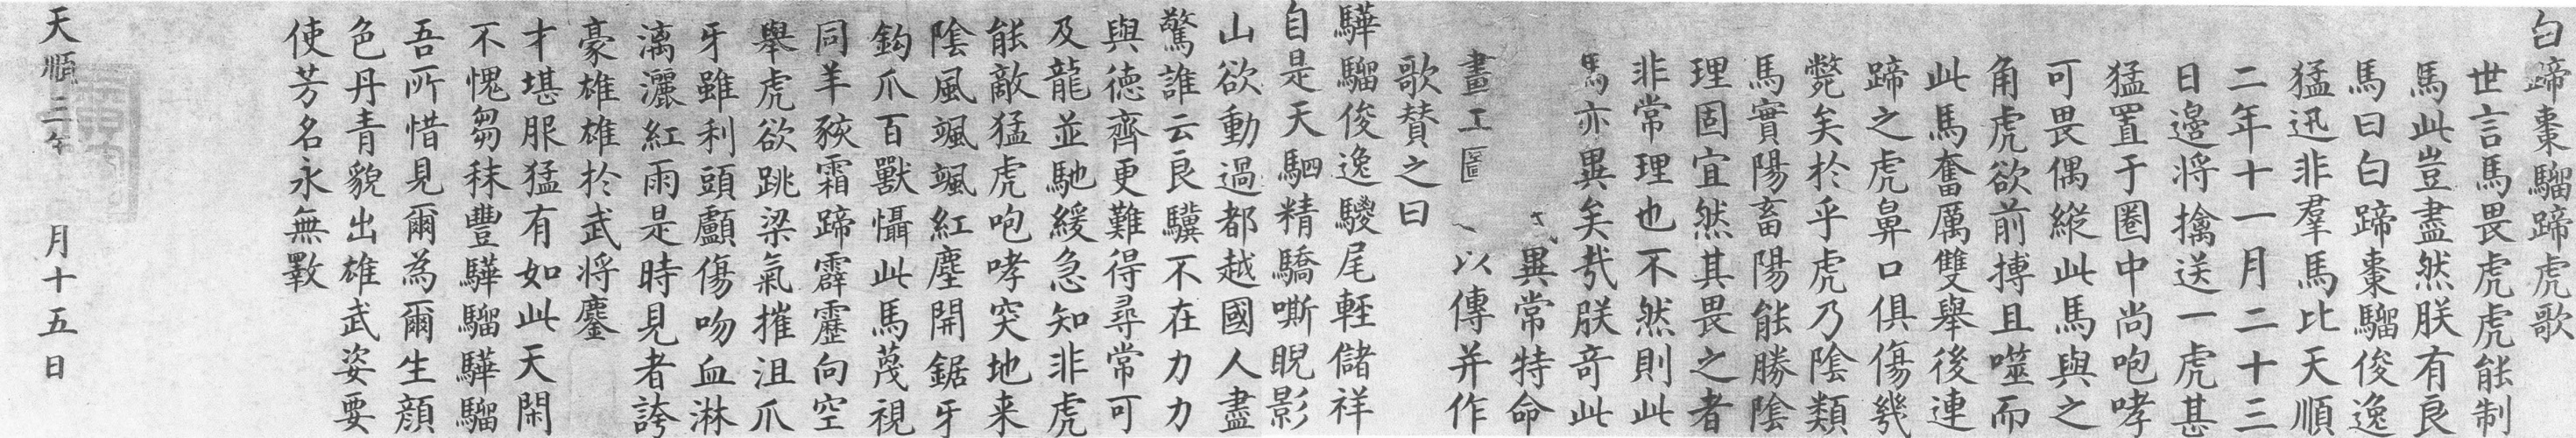 白蹄棗騮蹄虎歌
世言馬畏虎虎能制
馬此豈盡然朕有良
馬曰白蹄棗騮俊逸
猛迅非羣馬比天順
二年十一月二十三
日邊将擒送一虎甚
猛置于圈中尚咆哮
可畏偶縱此馬與之
角虎欲前搏且噬而
此馬奮厲雙舉後連
蹄之虎鼻口俱傷幾
斃矣於乎虎乃陰類
馬實陽畜陽能勝陰
理固宜然其畏之者
非常理也不然則此
馬亦異矣哉朕竒此
異常特命
畫工圖以傳并作
歌賛之曰
驊騮俊逸騣尾輕儲祥
自是天駟精驕嘶睨影
山欲動過都越國人盡
驚誰云良驥不在力力
與德齊更難得尋常可
及龍並馳緩急知非虎
能敵猛虎咆哮突地来
陰風颯颯紅塵開鋸牙
鈎爪百獸懾此馬蔑視
同羊豥霜蹄霹靂向空
舉虎欲跳梁氣摧沮爪
牙雖利頭顱傷吻血淋
漓灑紅雨是時見者誇
豪雄雄於武将鏖
才堪服猛有如此天閑
不愧芻秣豐驊騮驊騮
吾所惜見爾為爾生顔
色丹青貌出雄武姿要
使芳名永無斁
天順二年 月十五日